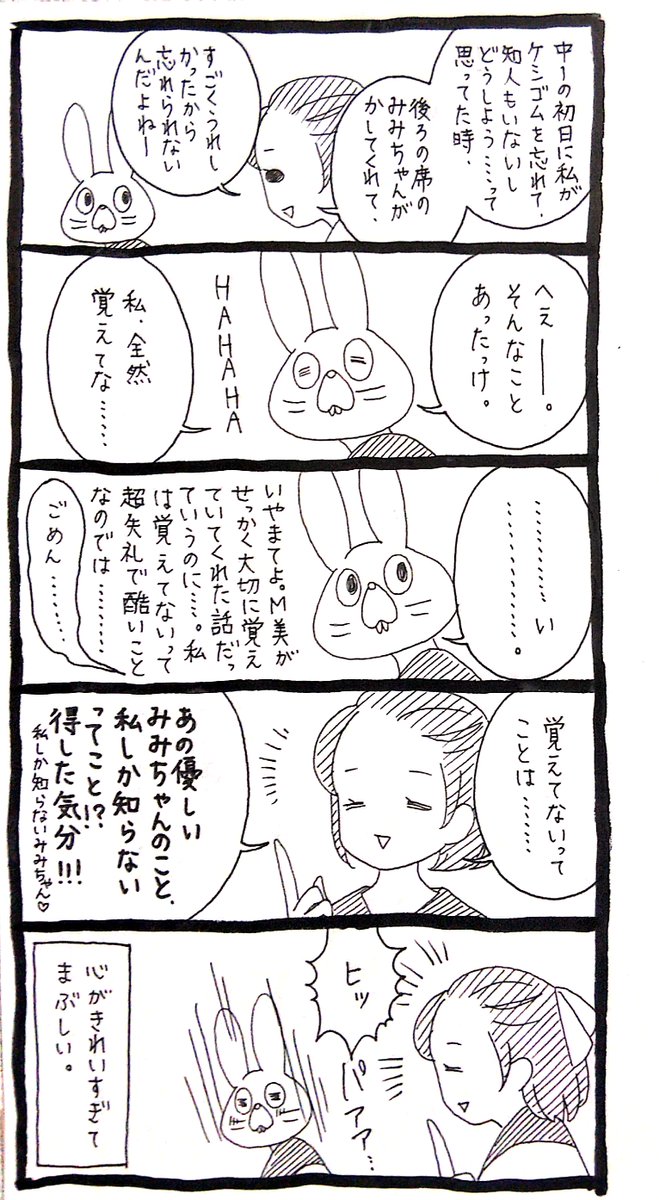 中1の初日に私が
ケシゴムを忘れて、
知人もいないし
どうしよう……って
思ってた時、
後ろの席の
みみちゃんが
かしてくれて、
すごくうれし
かったから
忘れられない
んだよねー
へぇーー。
そんなこと
あったっけ。
HAHAHA
私、全然
覚えてな……
…………い
…………。
いやまてよ。M美が
せっかく大切に覚え
ていてくれた話だっ
ていうのに…。私
は覚えてないって
超失礼で酷いこと
なのでは………
ごめん………
覚えてないって
ことは………
あの優しい
みみちゃんのこと、
私しか知らない
ってこと!?
得した気分!!!
私しか知らないみみちゃん♡
ヒッ
パァァ…
心がきれいすぎて
まぶしい。